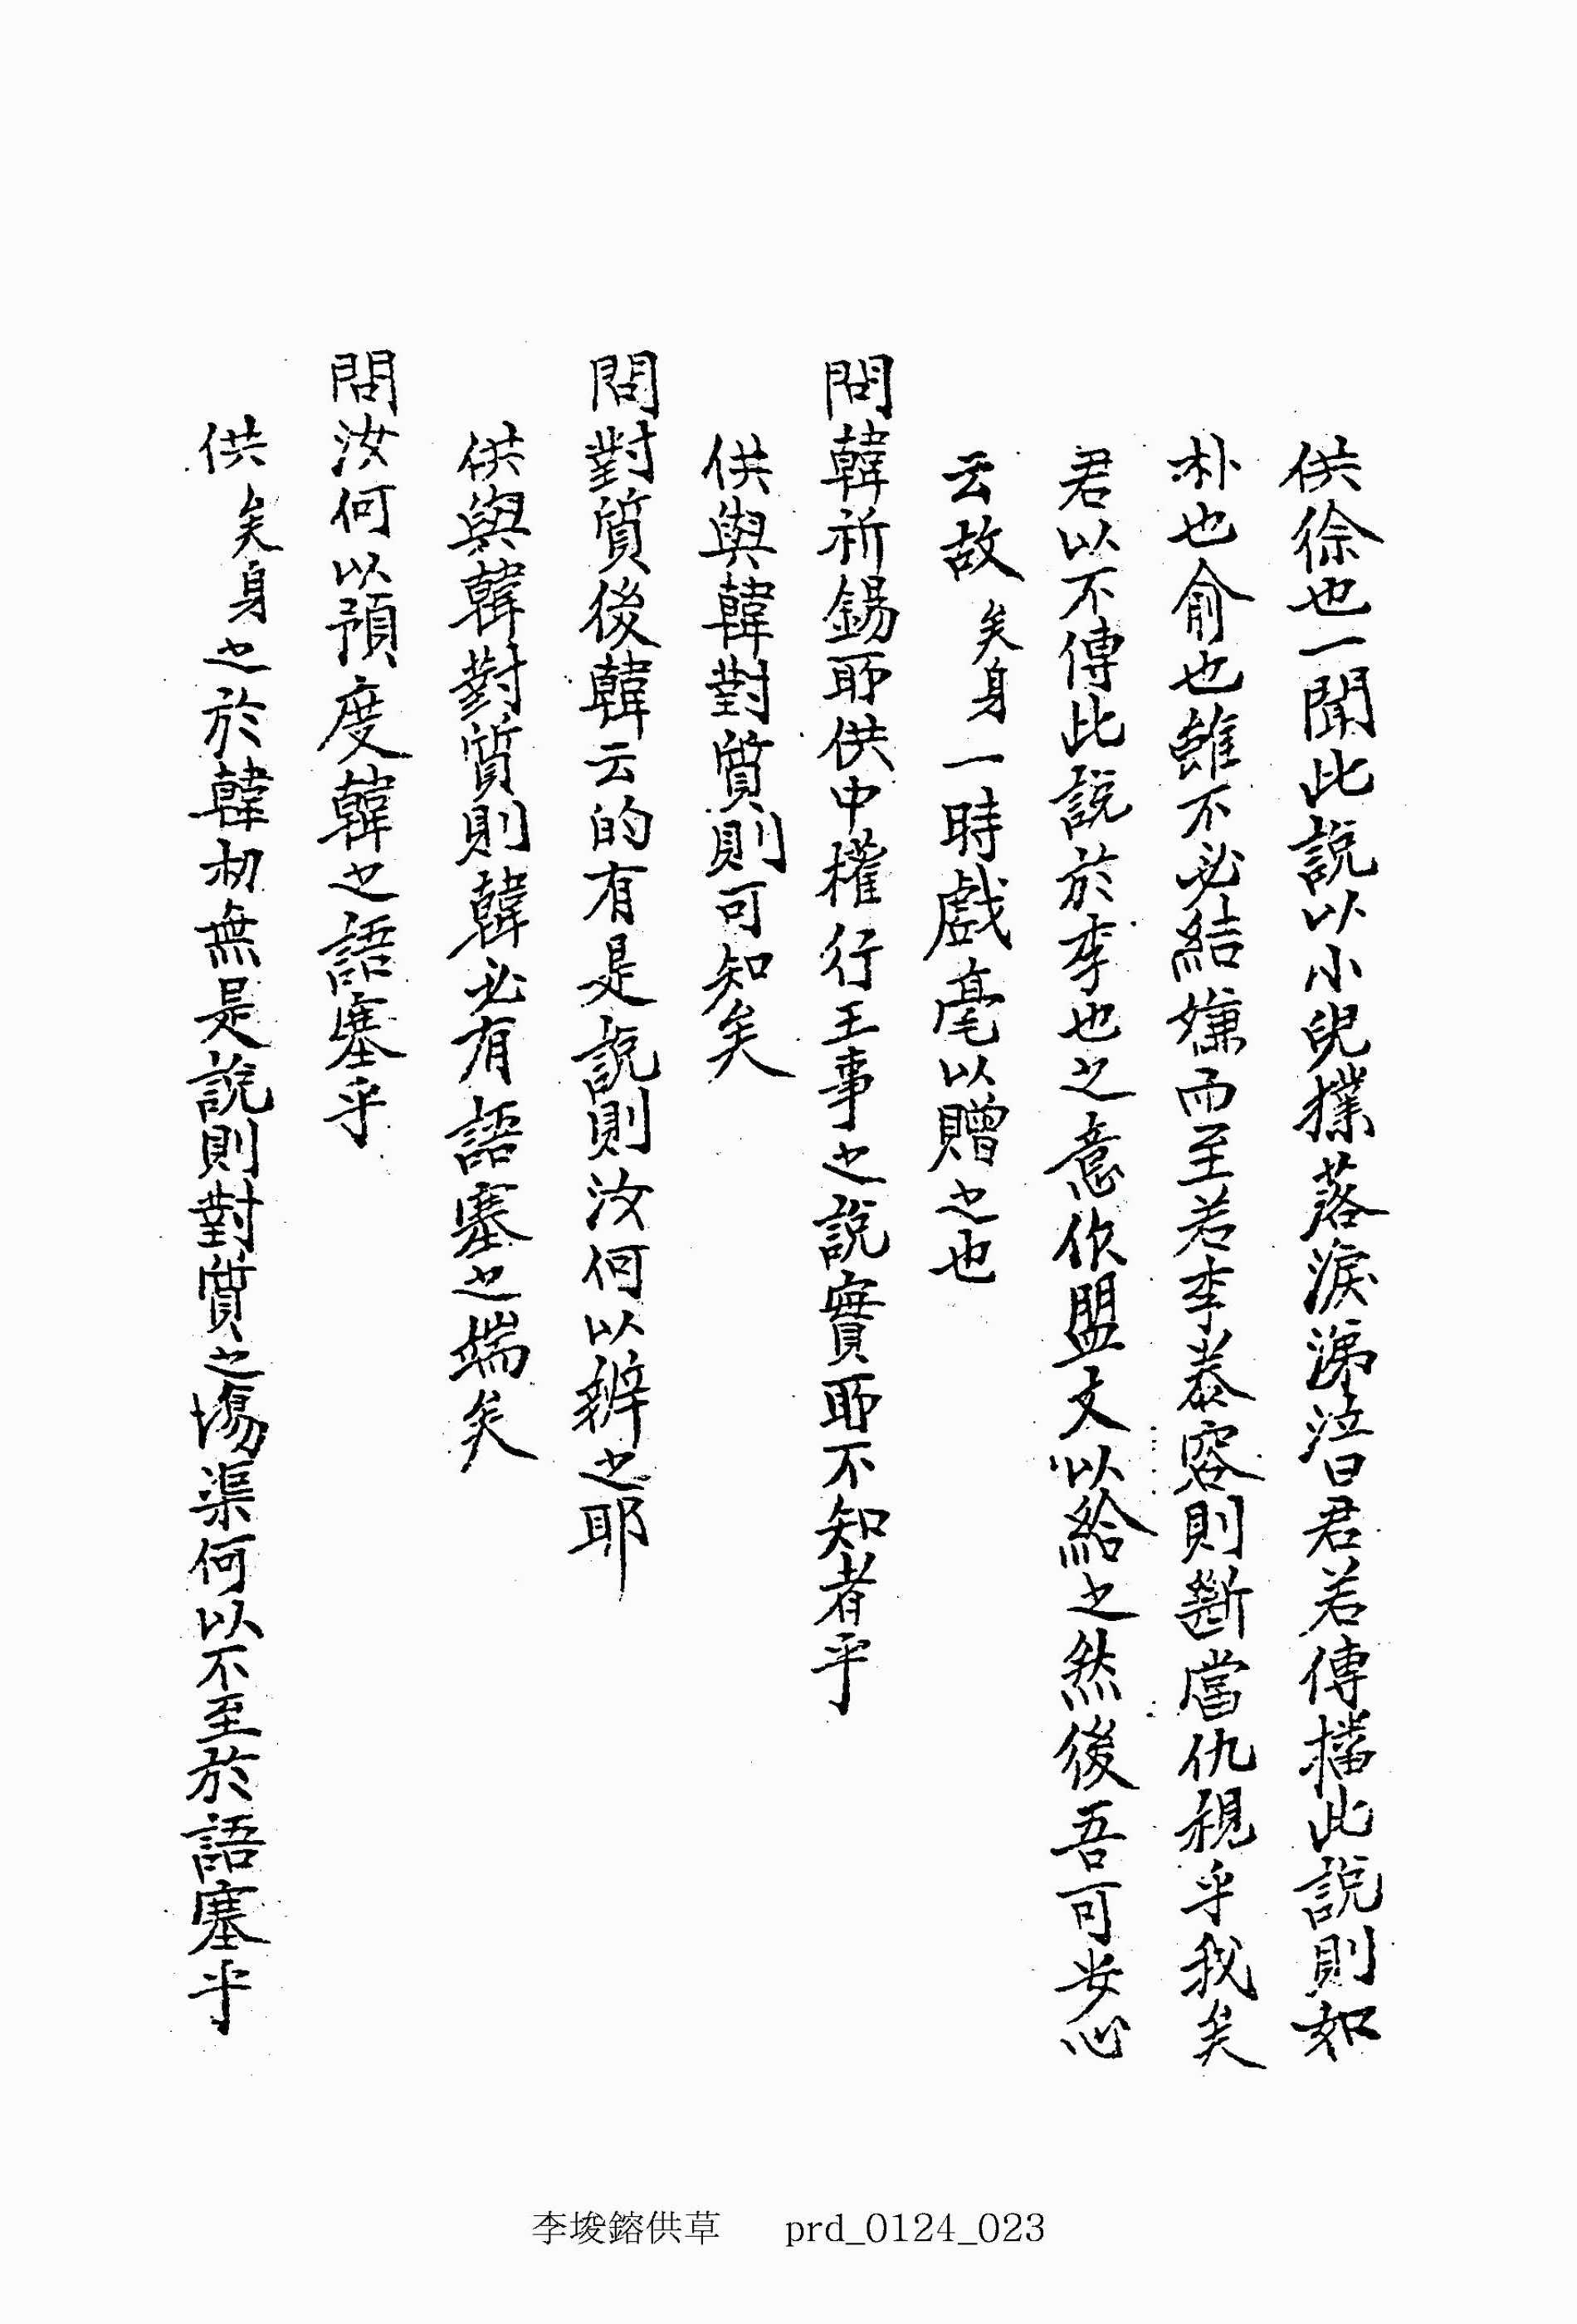 供徐也一聞此說以小兒撲落淚涕泣曰君若傳播此說則如
朴也兪也雖不必結嫌而至若李泰容則斷當仇視乎我矣
君以不傳此說於李也之意作盟文以給之然後吾可安心
云故矣身一時戲毫以贈之也
問韓祈錫耶供中權行王事之說實耶不知者乎
供與韓對質則可知矣
問對質後韓云的有是說則汝何以辨之耶
供與韓對質則韓必有語塞之端矣
問汝何以預度韓之語塞乎
供矣身之於韓初無是說則對質之場渠何以不至於語塞乎
李埈鎔供草 prd_0124_023